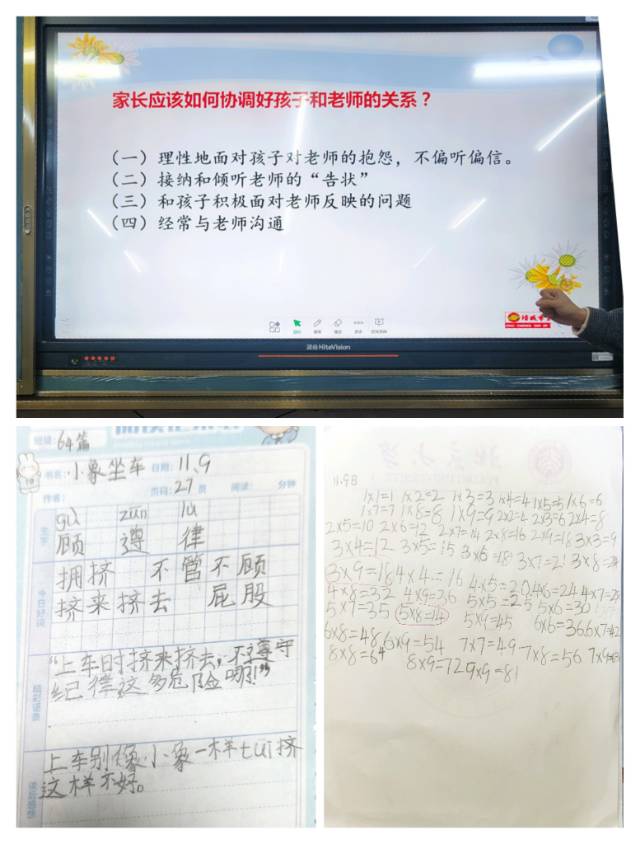 家长应该如何协调好孩子和老师的关系？
（一）理性地面对孩子对老师的抱怨，不偏听偏信。
（二）接纳和倾听老师的“告状”
（三）和孩子积极面对老师反映的问题
（四）经常与老师沟通
HiteVision
64篇
小象坐车 日期：11.9
页码：27页 阅读： 分钟
gù zūn lǜ
顾 遵 律
拥挤 不管不顾
挤来挤去 屁股
“上车时挤来挤去,不遵守
纪律这多危险啊!”
上车别像小象一样tuī挤
这样不好。
11.9日
1×1=1 1×2=2 1×3=3 1×4=4 1×5=5 1×6=6
1×7=7 1×8=8 1×9=9 2×2=4 2×3=6 2×4=8
2×5=10 2×6=12 2×7=14 2×8=16 2×9=18 3×3=9
3×4=12 3×5=15 3×6=18 3×7=21 3×8=24
3×9=18 4×4=16 4×5=20 4×6=24 4×7=28
4×8=32 4×9=36 5×5=25 5×6=30
5×7=35 5×8=14 5×9=45 6×6=36 6×7=42
6×8=48 6×9=54 7×7=49 7×8=56 7×9=63
8×8=64 8×9=72 9×9=81